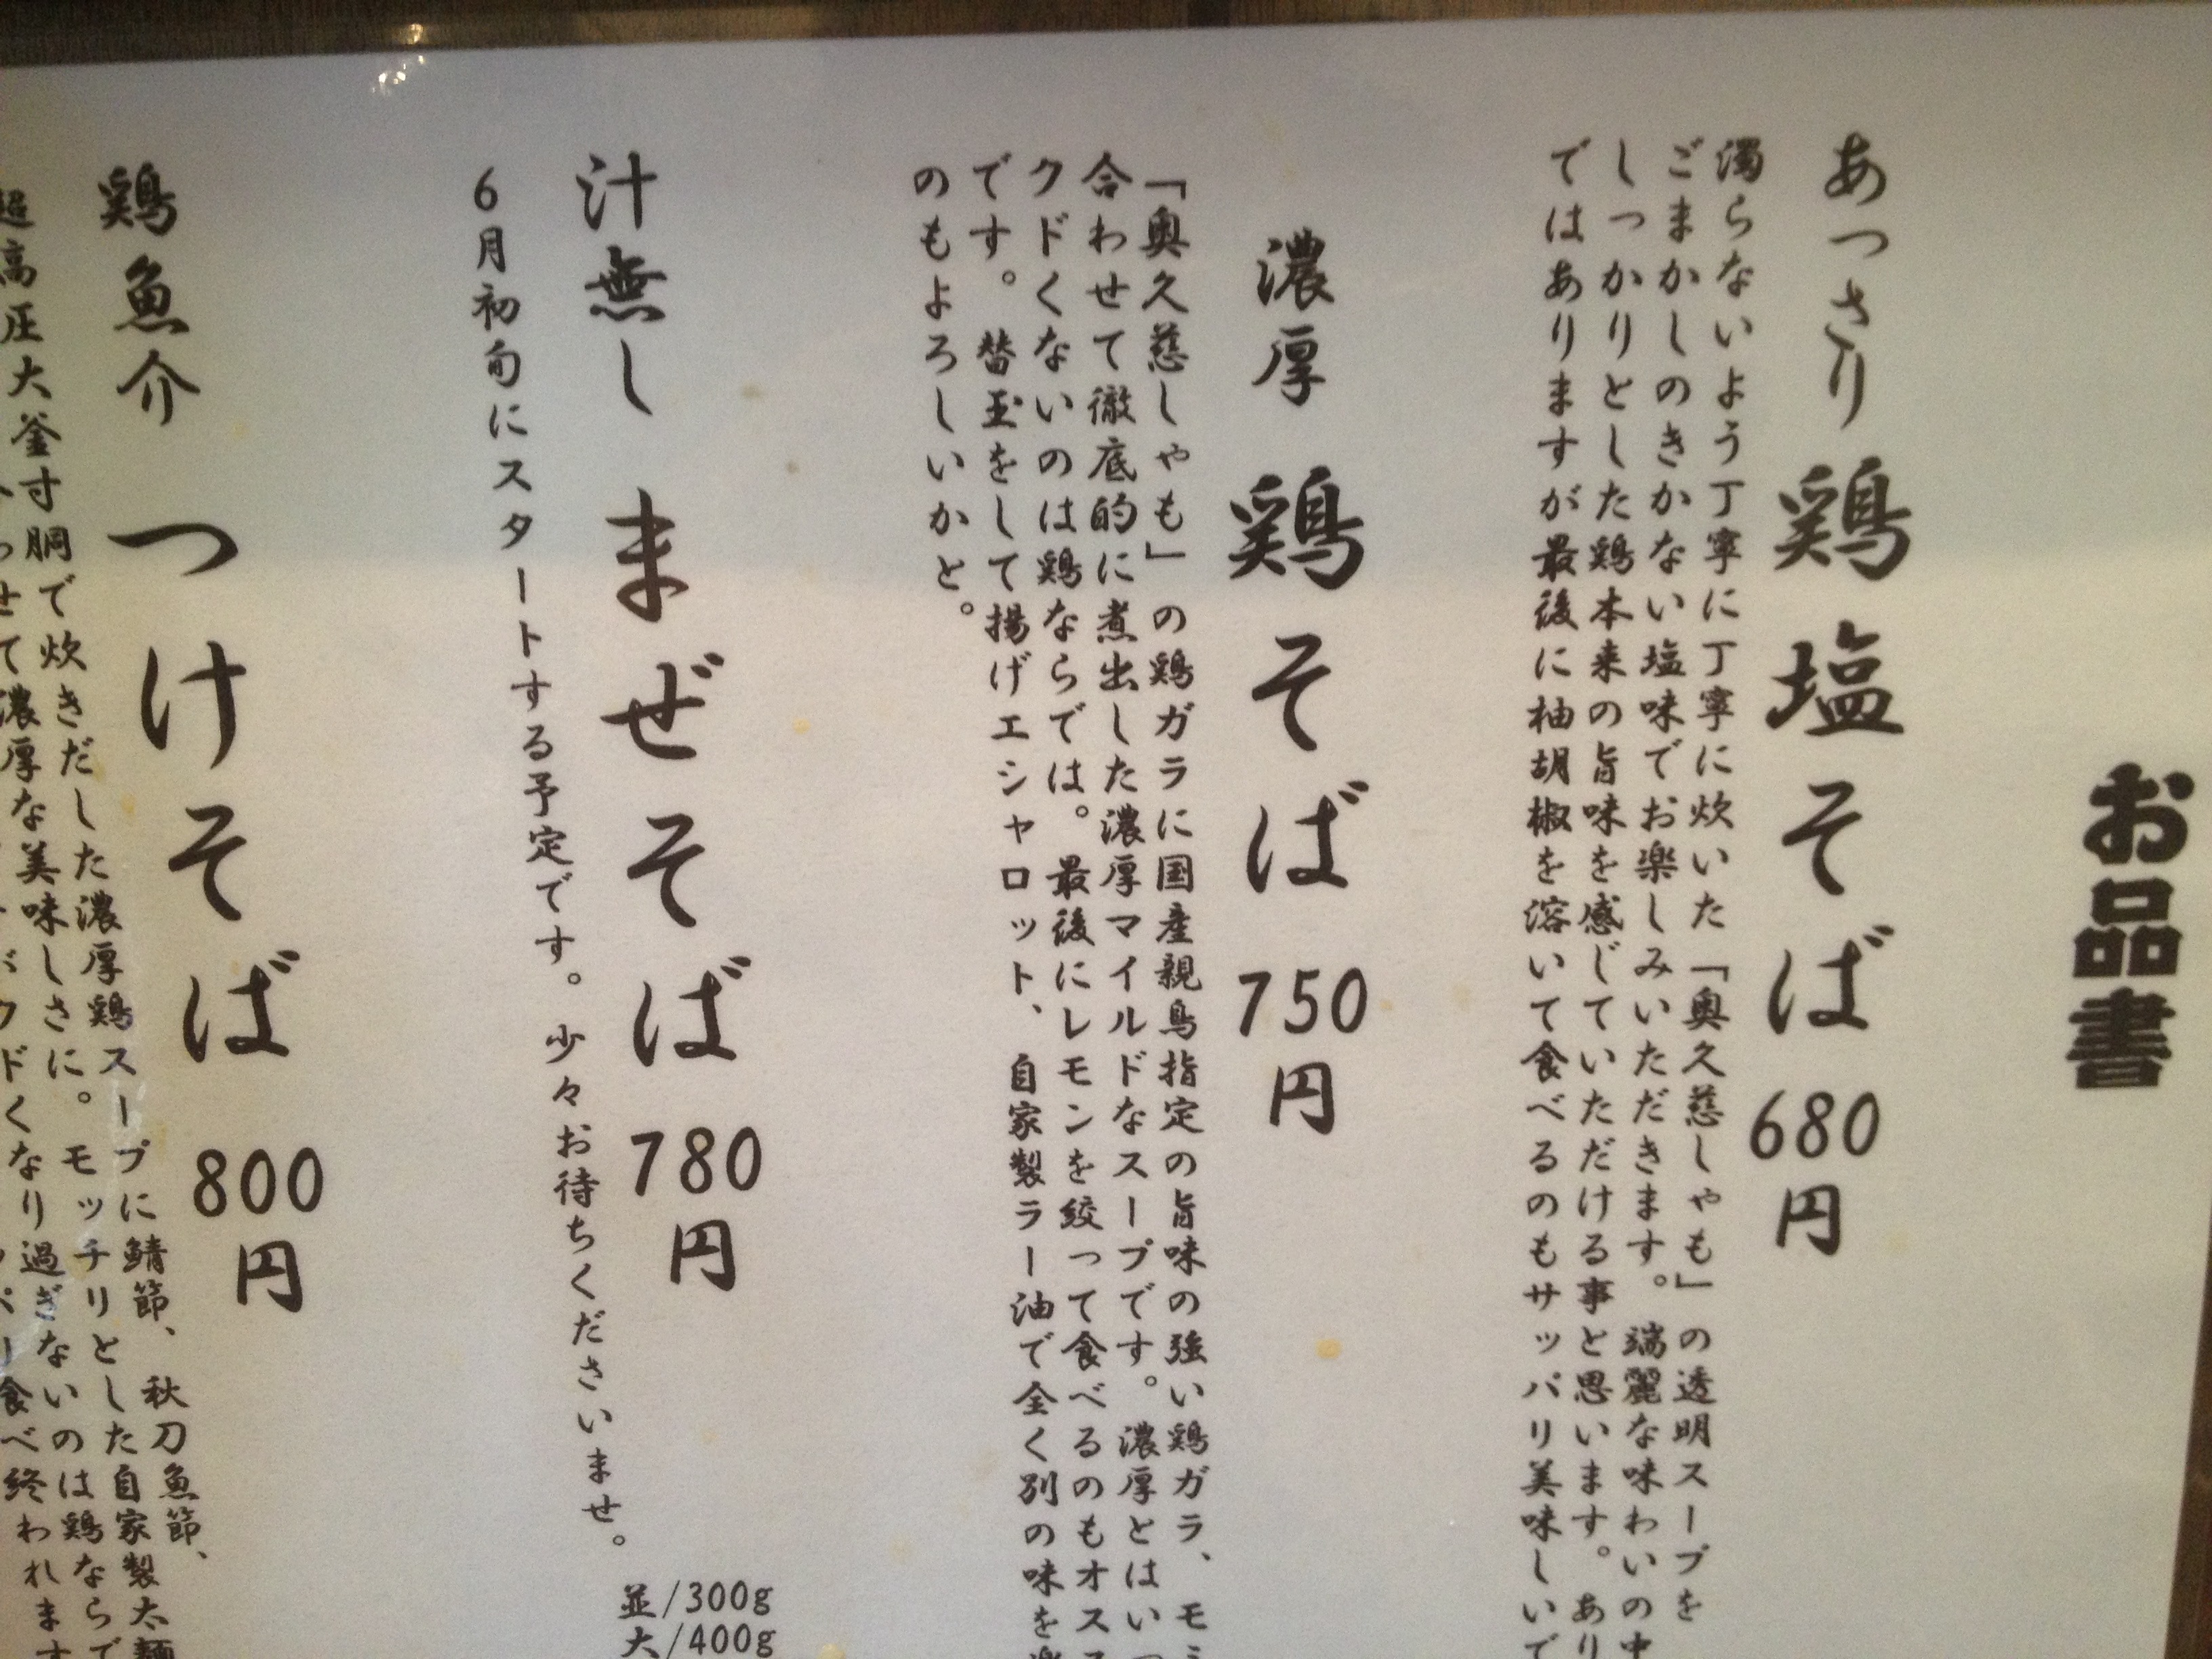 お品書
あっさり 鶏塩そば 680円
濁らないよう丁寧に丁寧に炊いた「奥久慈しゃも」の透明スープを
ごまかしのきかない塩味でお楽しみいただきます。端麗な味わいの中
しっかりとした鶏本来の旨味を感じていただける事と思います。あり
ではありますが最後に柚胡椒を溶いて食べるのもサッパリ美味しいで
濃厚 鶏そば 750円
「奥久慈しゃも」の鶏ガラに国産親鳥指定の旨味の強い鶏ガラ、モミ
合わせて徹底的に煮出した濃厚マイルドなスープです。濃厚とはいっ
クドくないのは鶏ならでは。最後にレモンを絞って食べるのもオスス
です。替玉をして揚げエシャロット、自家製ラー油で全く別の味を楽
のもよろしいかと。
汁無し まぜそば 780円
6月初旬にスタートする予定です。少々お待ちくださいませ。
並/300g
大/400g
鶏魚介 つけそば 800円
超高圧大釜寸胴で炊きだした濃厚鶏スープに鯖節、秋刀魚節、
せて濃厚な美味しさに。モッチリとした自家製太麺
クドくなり過ぎないのは鶏ならで
食べ終われます